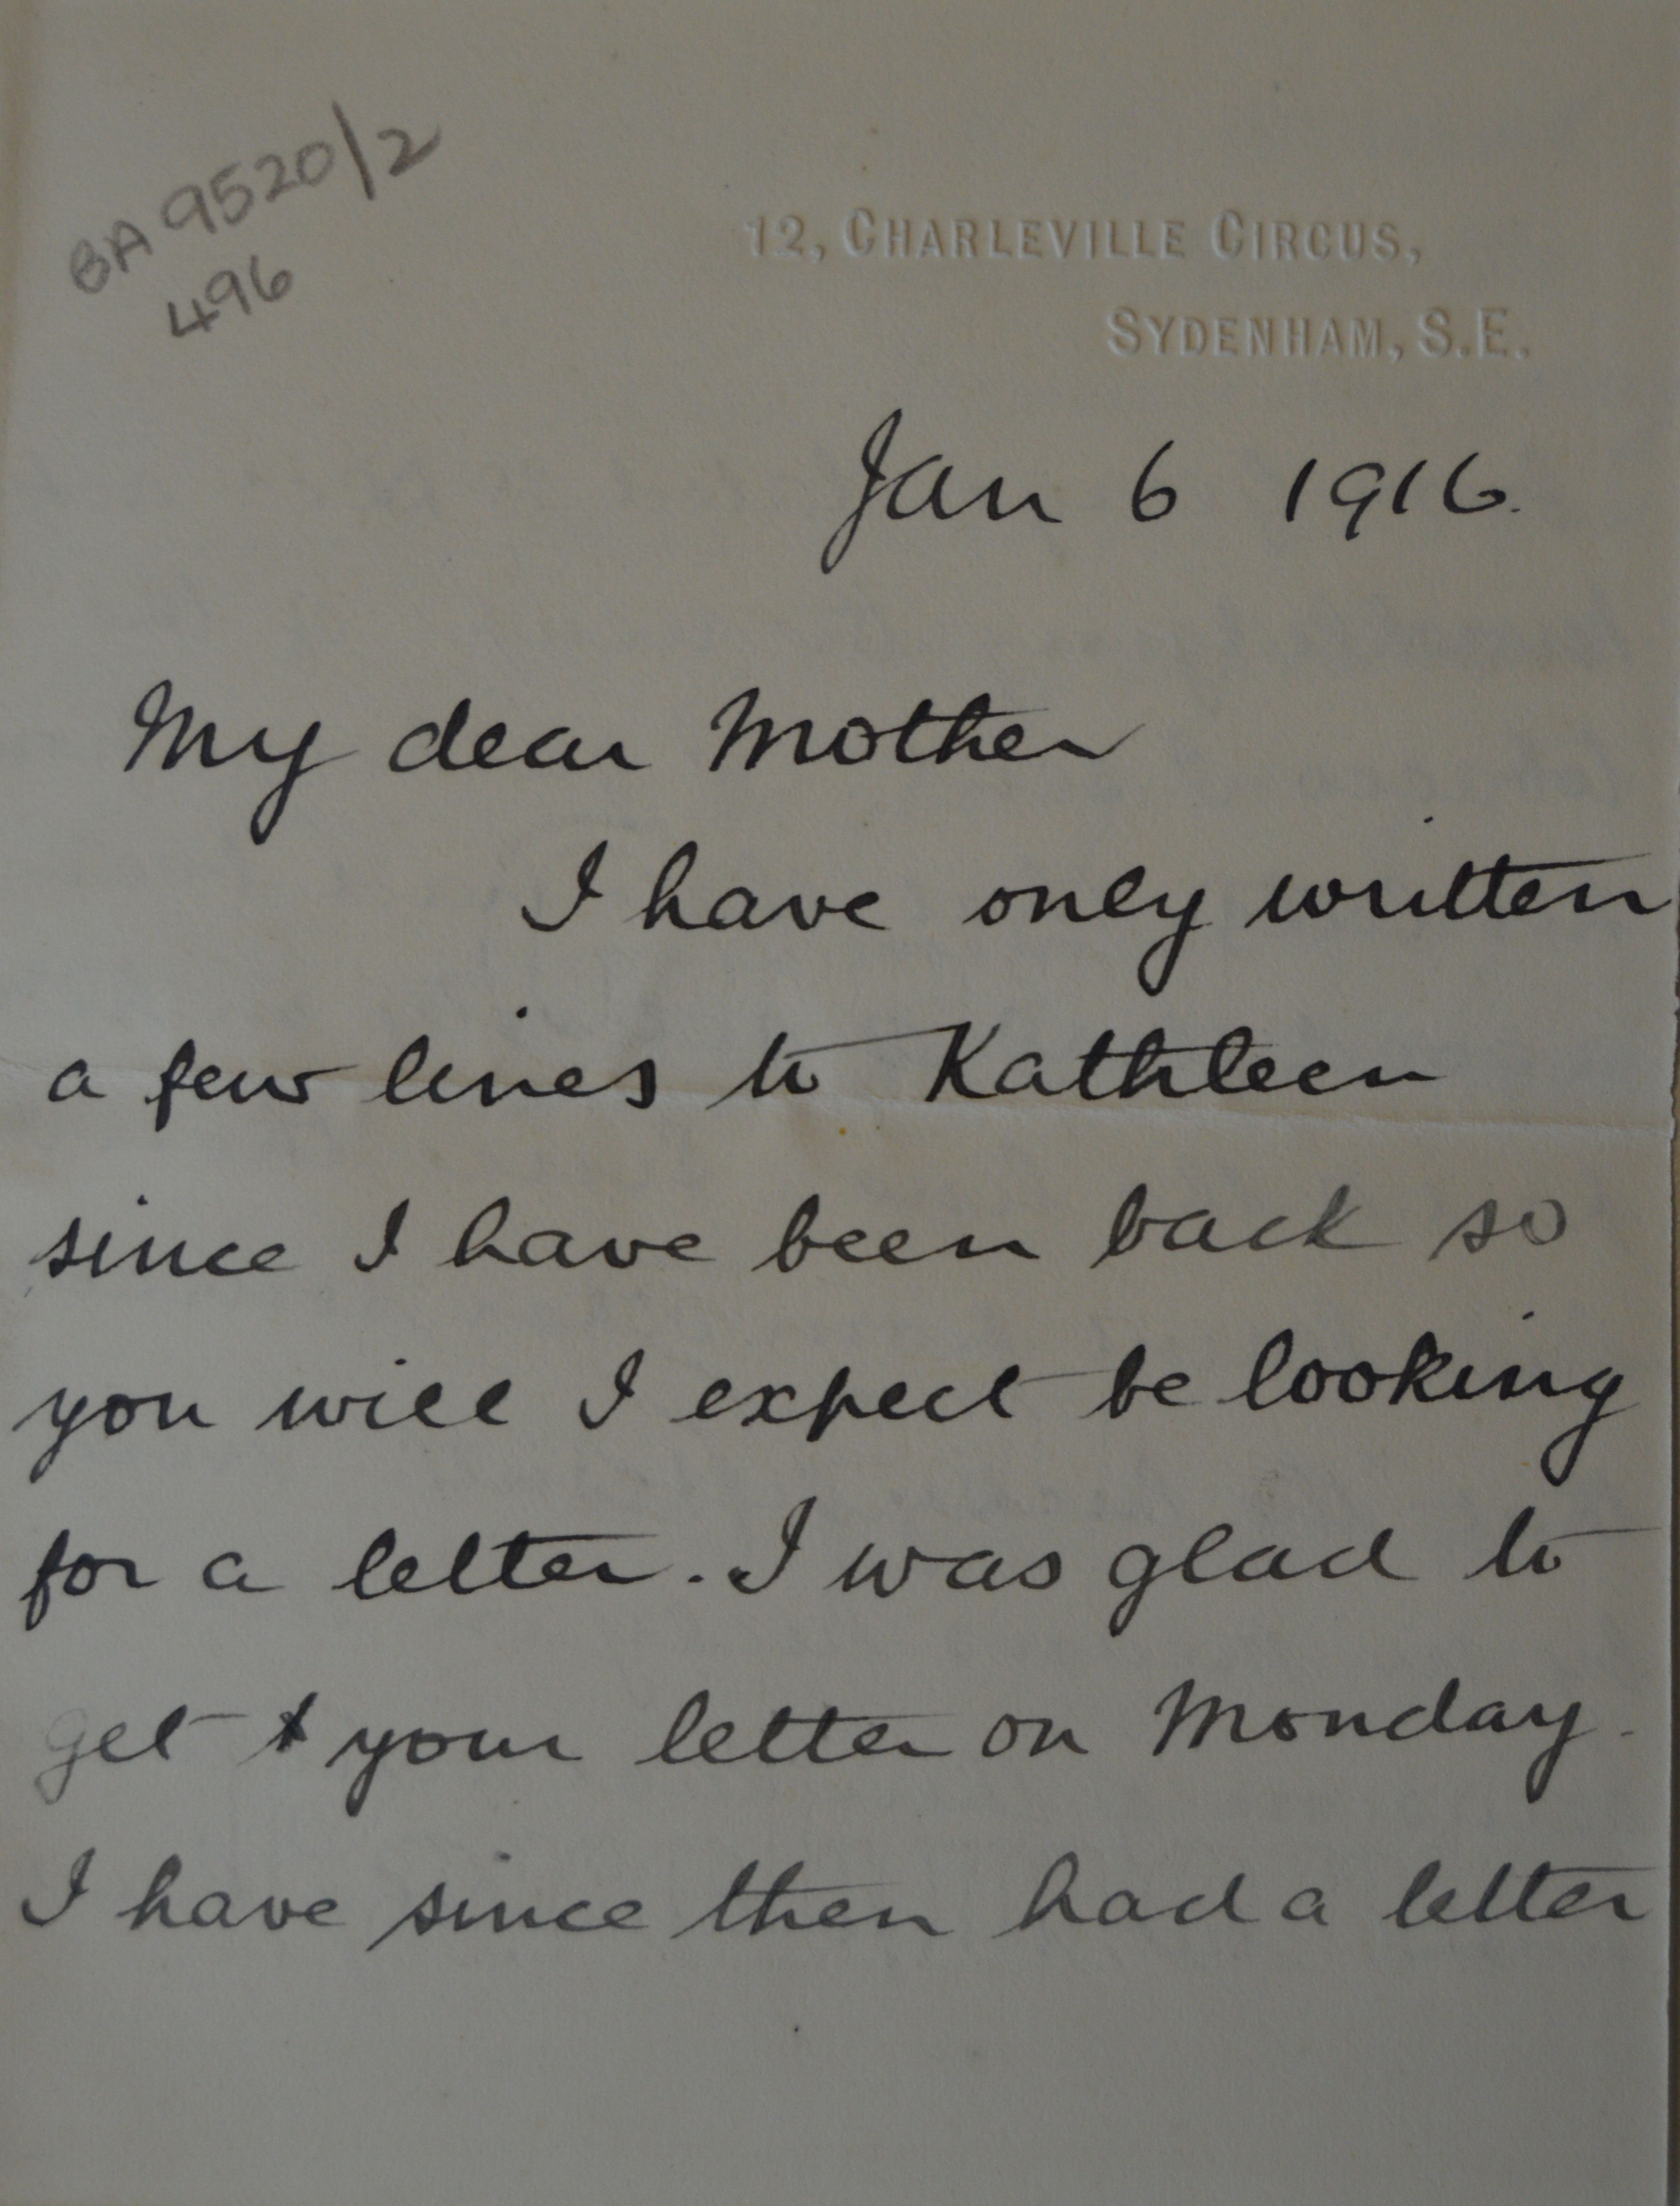 BA 9520/2
496
12, CHARLEVILLE CIRCUS,
SYDENHAM, S.E.
Jan 6 1916.
My dear Mother
I have only written
a few lines to Kathleen
since I have been back so
you will I expect be looking
for a letter. I was glad to
get your letter on Monday.
I have since then had a letter